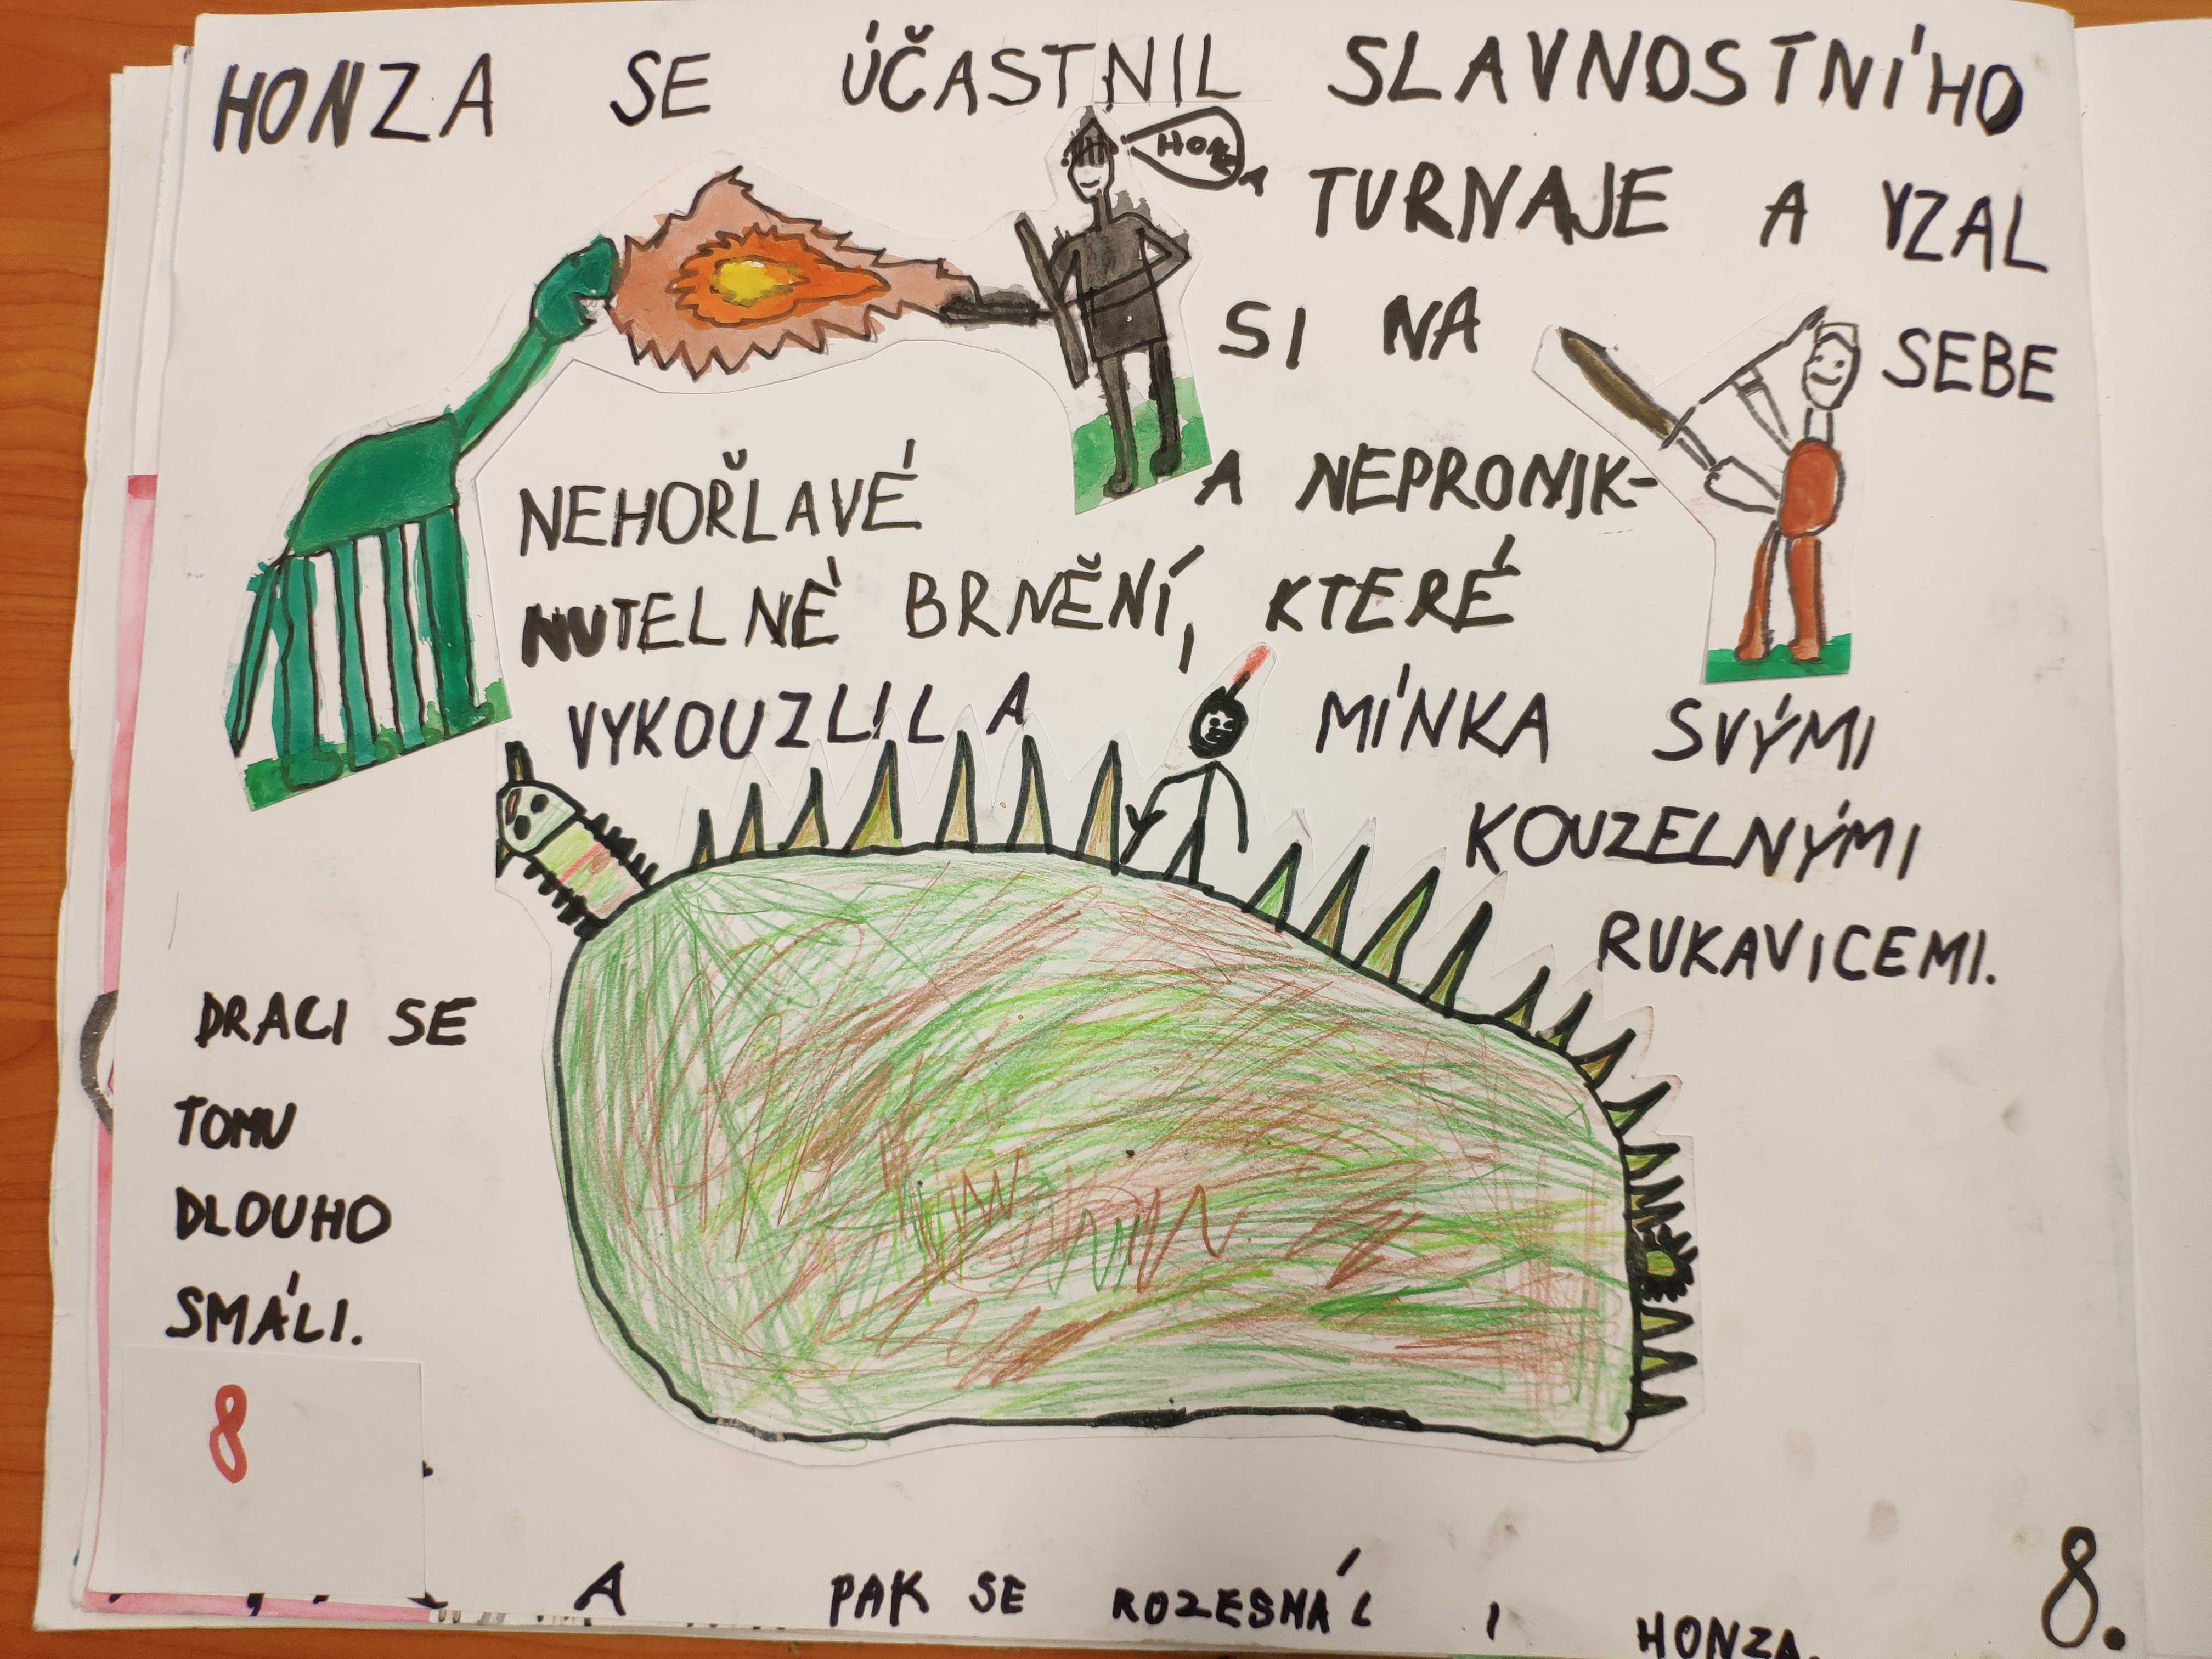 HONZA SE ÚČASTNIL SLAVNOSTNÍHO
HONZA
TURNAJE A VZAL
SI NA SEBE
NEHOŘLAVÉ A NEPRONIK-
NUTELNÉ BRNĚNÍ, KTERÉ
VYKOUZLILA MÍNKA SVÝMI
KOUZELNÝMI
RUKAVICEMI.
DRACI SE
TOMU
DLOUHO
SMÁLI.
8
A PAK SE ROZESMÁL I HONZA.
8.